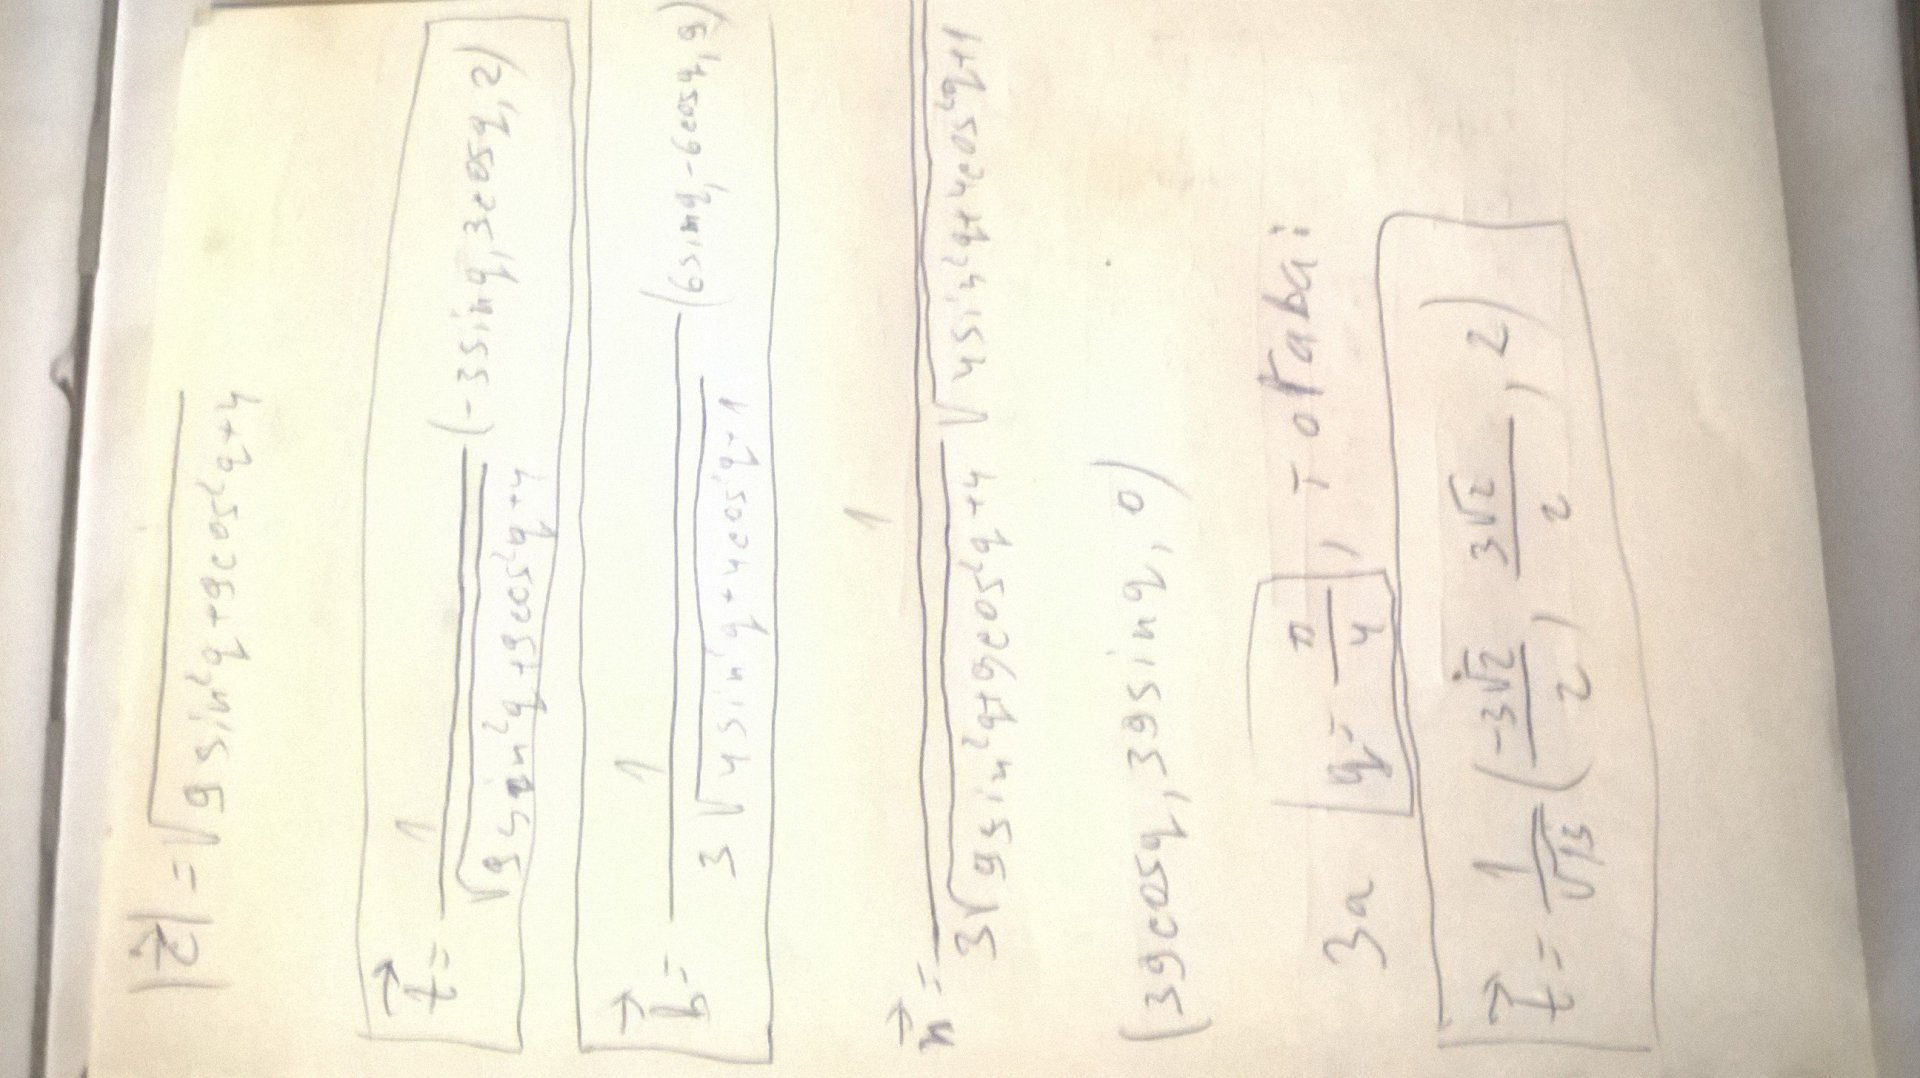 |c⃗| = √(9sin²q+9cos²q+4)
t⃗ = 1/√(9sin²q+9cos²q+4) (-3sinq, 3cosq, 2)
b⃗ = 1/(3√(4sin²q+4cos²q+1)) (6sinq, -6cosq, 9)
n⃗ = 1/(3√(9sin²q+9cos²q+4) √(4sin²q+4cos²q+1))
(39cosq, 39sinq, 0)
За q = π/4, то така:
t⃗ = 1/√13 (-3√2/2, 3√2/2, 2)